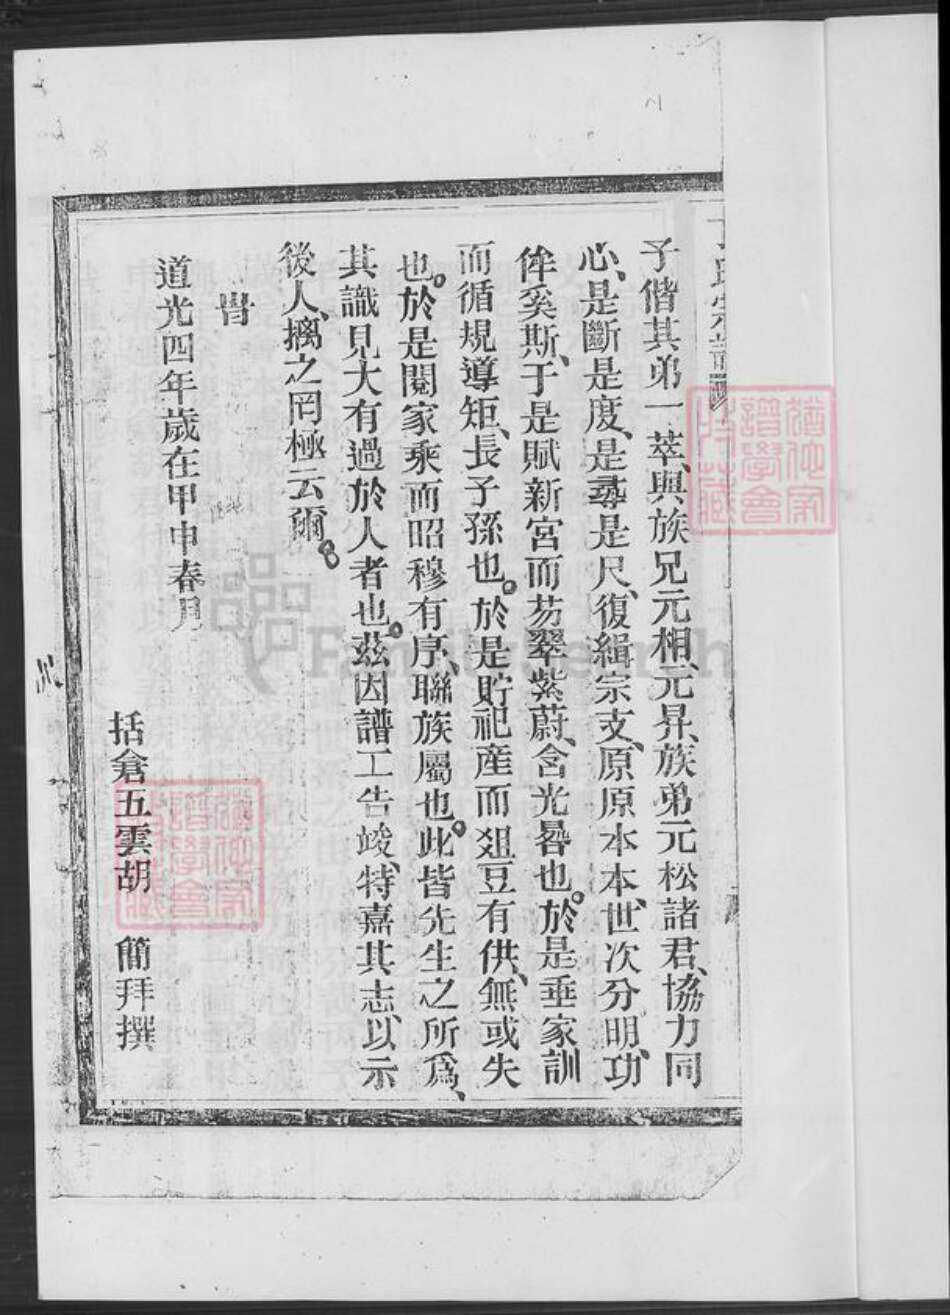 氏宗譜
子偕其弟一萃、與族兄元相、元昇、族弟元松諸君、協力同
心、是斷是度、是尋是尺、復緝宗支、原原本本、世次分明、功
侔奚斯、于是賦新宮而芴翠紫蔚、含光晷也。於是垂家訓
而循規導矩、長子孫也。於是貯祀產而爼豆有供、無或失
也。於是閱家乘而昭穆有序、聯族屬也。此皆先生之所爲、
其識見大有過於人者也。茲因譜工告竣、特嘉其志、以示
後人、摛之罔極云爾。
旹
道光四年歲在甲申春月
括倉五雲胡 簡拜撰
譜學會
譜學會
FamilySearch